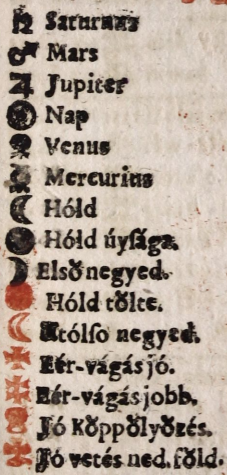 ♄ Saturnus
♂ Mars
♃ Jupiter
☉ Nap
♀ Venus
☿ Mercurius
☾ Hóld
Hóld úysága.
Első negyed.
Hóld tőlte.
Utólso negyed.
Eér-vágás jó.
Eér-vágás jobb.
Jó Kőppőlyőzés.
Jó vetés ned. főld.